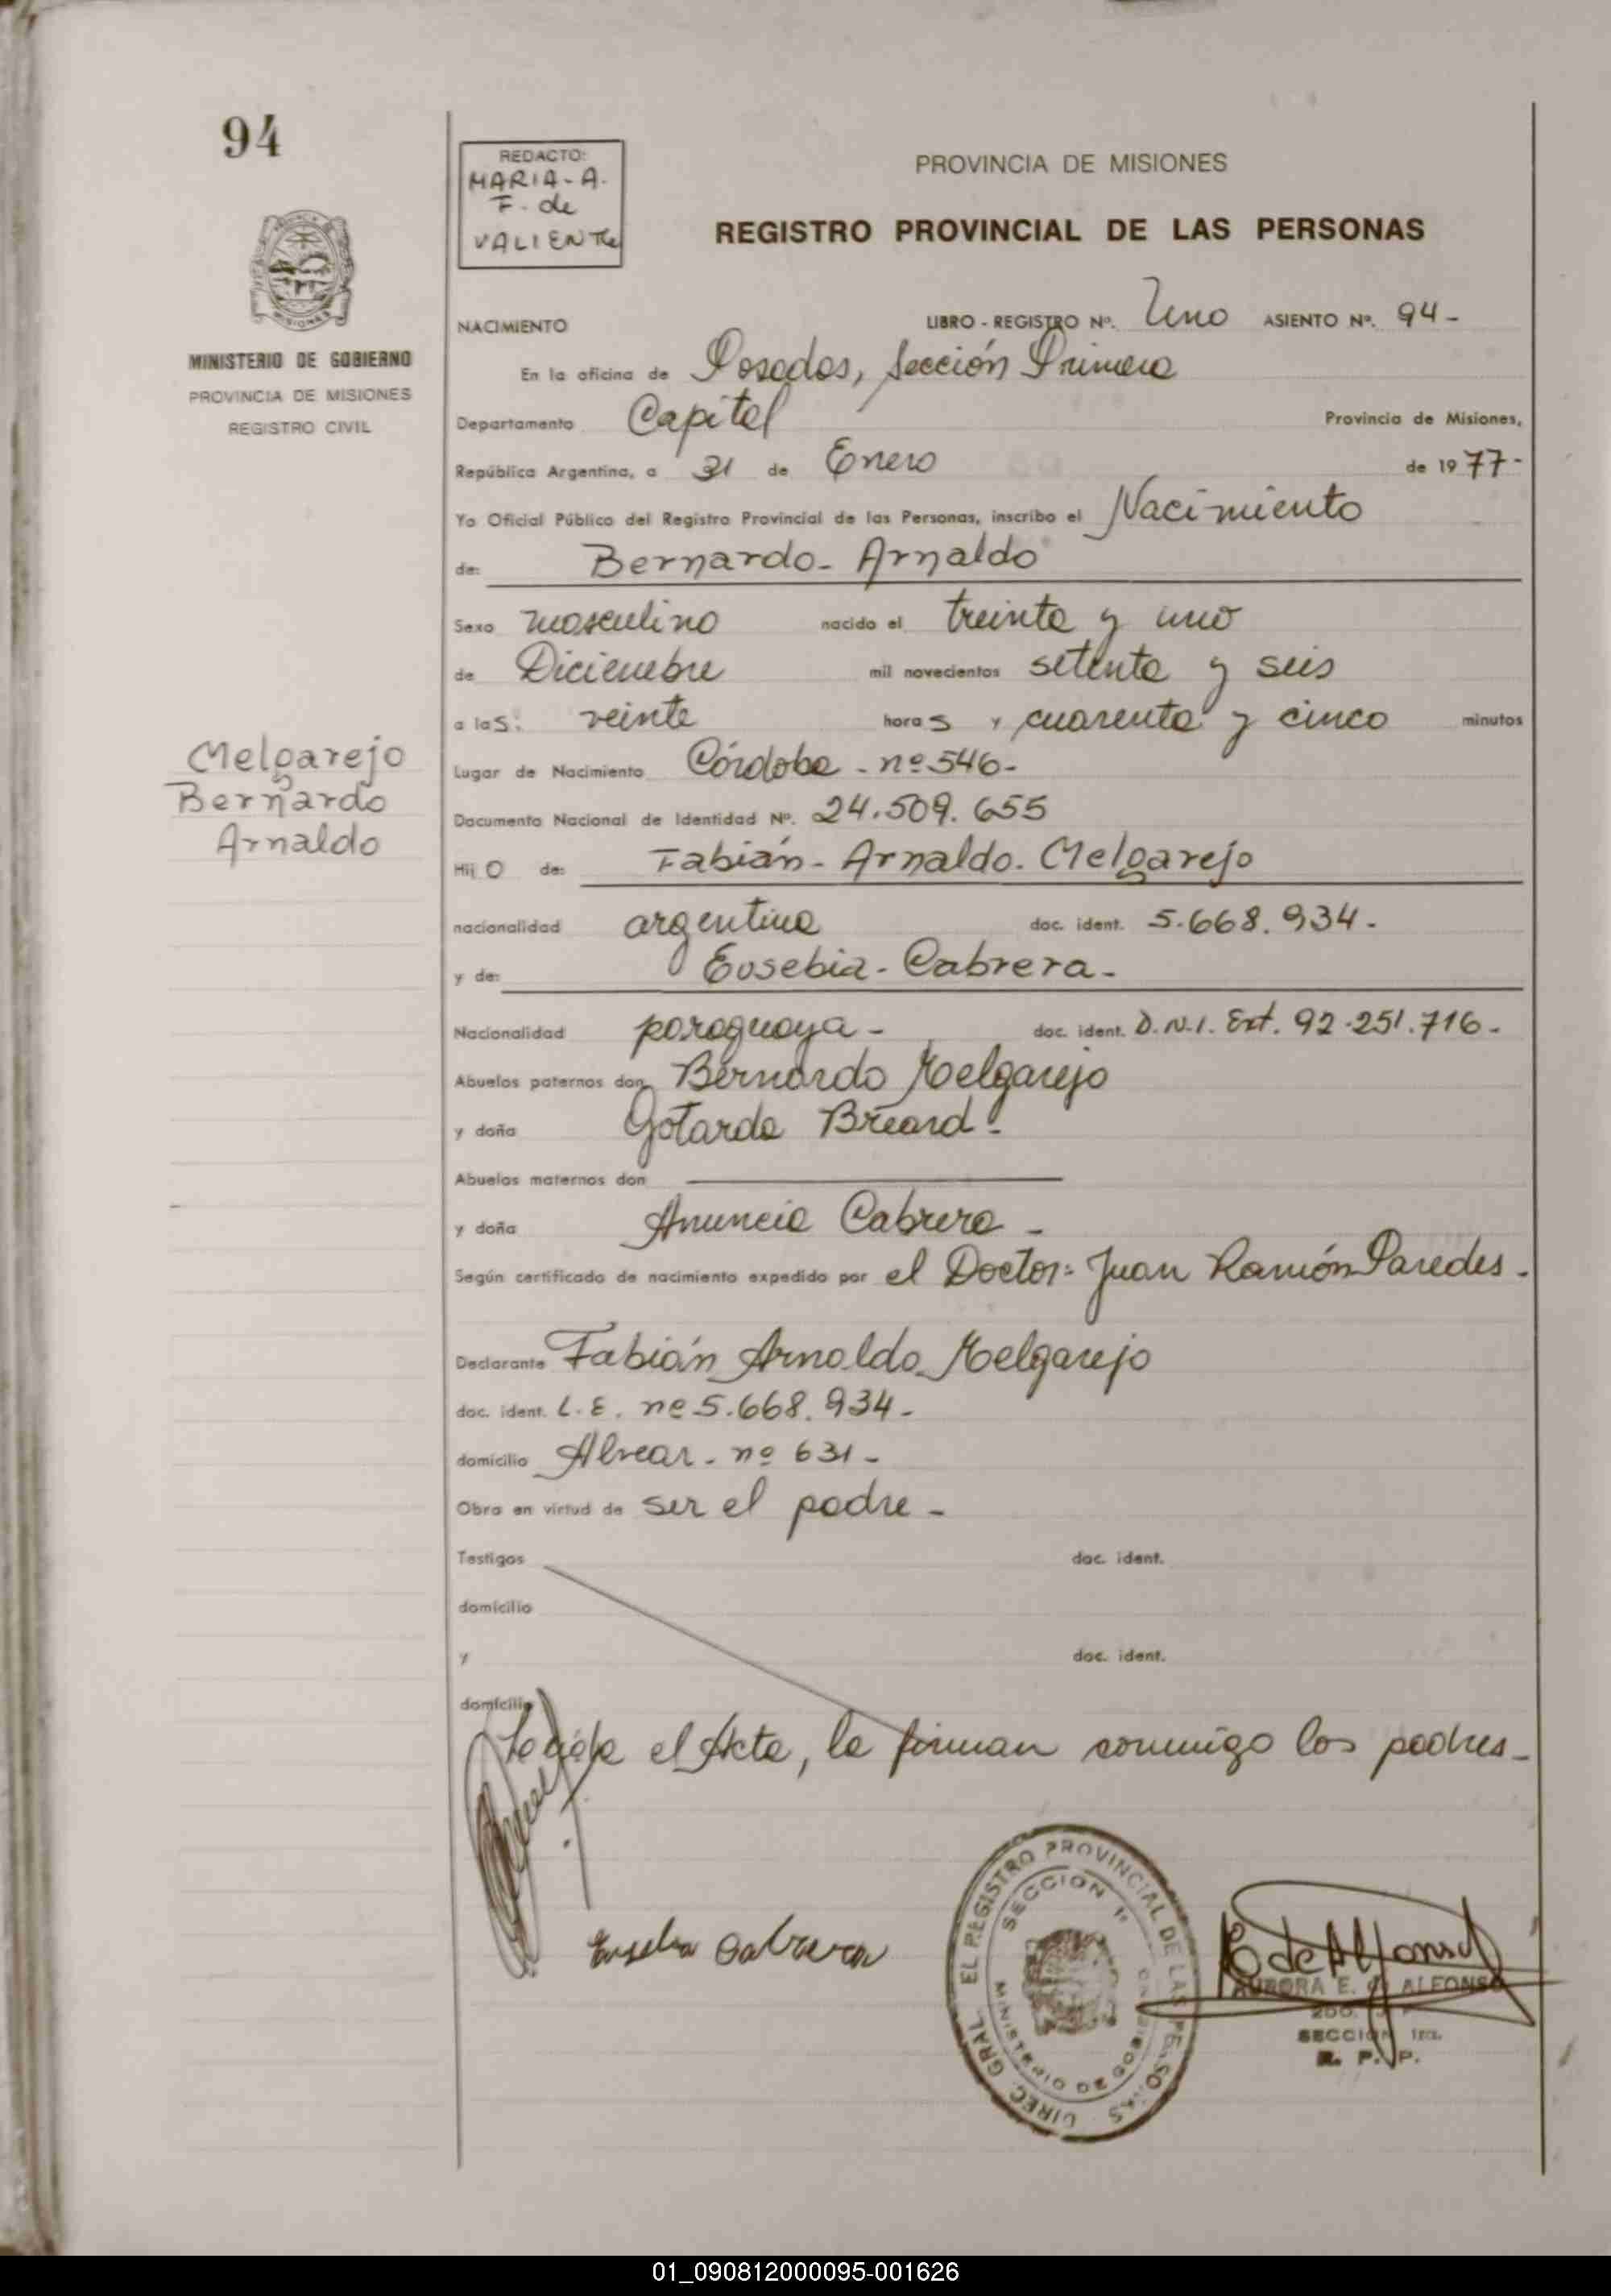 94
REDACTO:
MARIA-A.
F. de
VALIENTE
PROVINCIA DE MISIONES
REGISTRO PROVINCIAL DE LAS PERSONAS
MISIONES
MINISTERIO DE GOBIERNO
PROVINCIA DE MISIONES
REGISTRO CIVIL
NACIMIENTO LIBRO - REGISTRO Nº. Uno ASIENTO Nº. 94 -
En la oficina de Posadas, Sección Primera
Departamento Capital Provincia de Misiones,
República Argentina, a 31 de Enero de 1977-
Yo Oficial Público del Registro Provincial de las Personas, inscribo el Nacimiento
de: Bernardo- Arnaldo
Sexo masculino nacido el treinta y uno
de Diciembre mil novecientos setenta y seis
a las: veinte horas y cuarenta y cinco minutos
Melgarejo
Bernardo
Arnaldo
Lugar de Nacimiento Córdoba - nº 546-
Documento Nacional de Identidad Nº. 24.509.655
Hijo de: Fabián- Arnaldo. Melgarejo
nacionalidad argentina doc. ident. 5.668.934-
y de: Eusebia- Cabrera-
Nacionalidad paraguaya- doc. ident. D.N.I. Ext. 92.251.716-
Abuelos paternos don Bernardo Melgarejo
y doña Gotarda Breard-
Abuelos maternos don
y doña Anuncia Cabrera -
Según certificado de nacimiento expedido por el Doctor: Juan Ramón Paredes.
Declarante Fabián Arnaldo Melgarejo
doc. ident. L.E. nº 5.668.934-
domicilio Alvear- nº 631-
Obra en virtud de ser el padre-
Testigos doc. ident.
domicilio
y doc. ident.
domicilio
el Acta, la firman conmigo los padres-
Eusebia Cabrera
DIREC. GRAL. EL REGISTRO PROVINCIAL DE LAS PERSONAS
SECCION 1ª
MINISTERIO DE GOBIERNO
E de Alfonso
AURORA E. de ALFONSO
SECCION 1ra.
R. P. P.
01_090812000095-001626